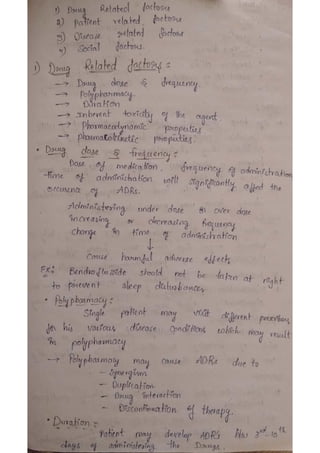 1) Drug Related factors
2) Patient related factors
3) Disease related factors
4) Social factors.
1) Drug Related factors :
→ Drug dose & frequency.
→ Polypharmacy.
→ Duration
→ Inherent toxicity of the agent.
→ Pharmacodynamic properties
→ pharmacokinetic properties.
• Drug dose & frequency :
Dose of medication, frequency of administration
-time of administration will significantly affect the
occurence of ADRs.
Administering under dose or over dose
increasing or decreasing frequency
change in time of administration
↓
cause harmful adverse effects
EX: Bendrofluazide should not be taken at night
to prevent sleep disturbances
• Polypharmacy :
Single patient may visit different prescribers
for his various disease conditions which may result
in polypharmacy
→ Polypharmacy may cause ADRs due to
- Synergism
- Duplication
- Drug interaction
- Discontinuation of therapy.
• Duration :
Patient may develop ADRs 3rd - 10th
days of administering the Drugs.